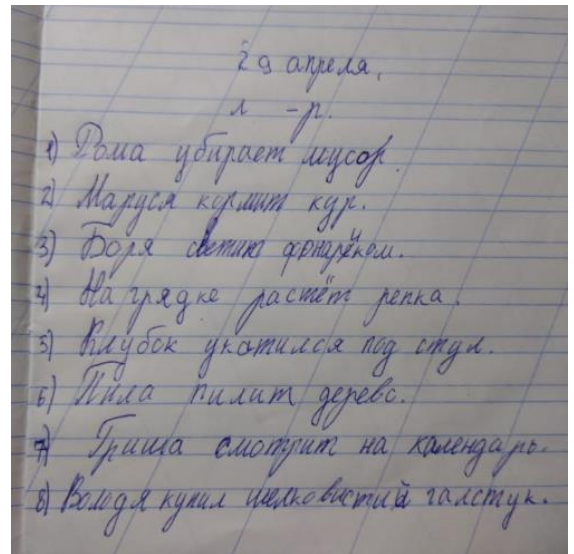 29 апреля,
л - р.
1) Рома убирает мусор.
2) Маруся кормит кур.
3) Боря светит фонарёком.
4) На грядке растёт репка.
5) Клубок укатился под стул.
6) Пила пилит дерево.
7) Гриша смотрит на календарь.
8) Володя купил шелковистый галстук.